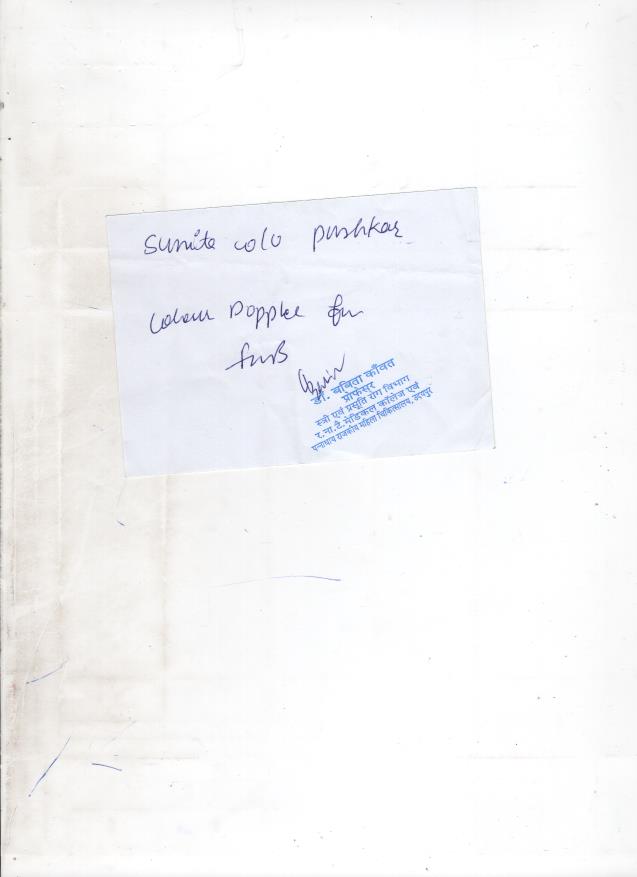 Sumita w/o Pushkar
Colour Doppler for
FWB
डॉ. बविता काँवत
प्रोफेसर
स्त्री एवं प्रसूति रोग विभाग
र.ना.टै. मेडिकल कॉलेज एवं
पन्नाधाय राजकीय महिला चिकित्सालय, उदयपुर